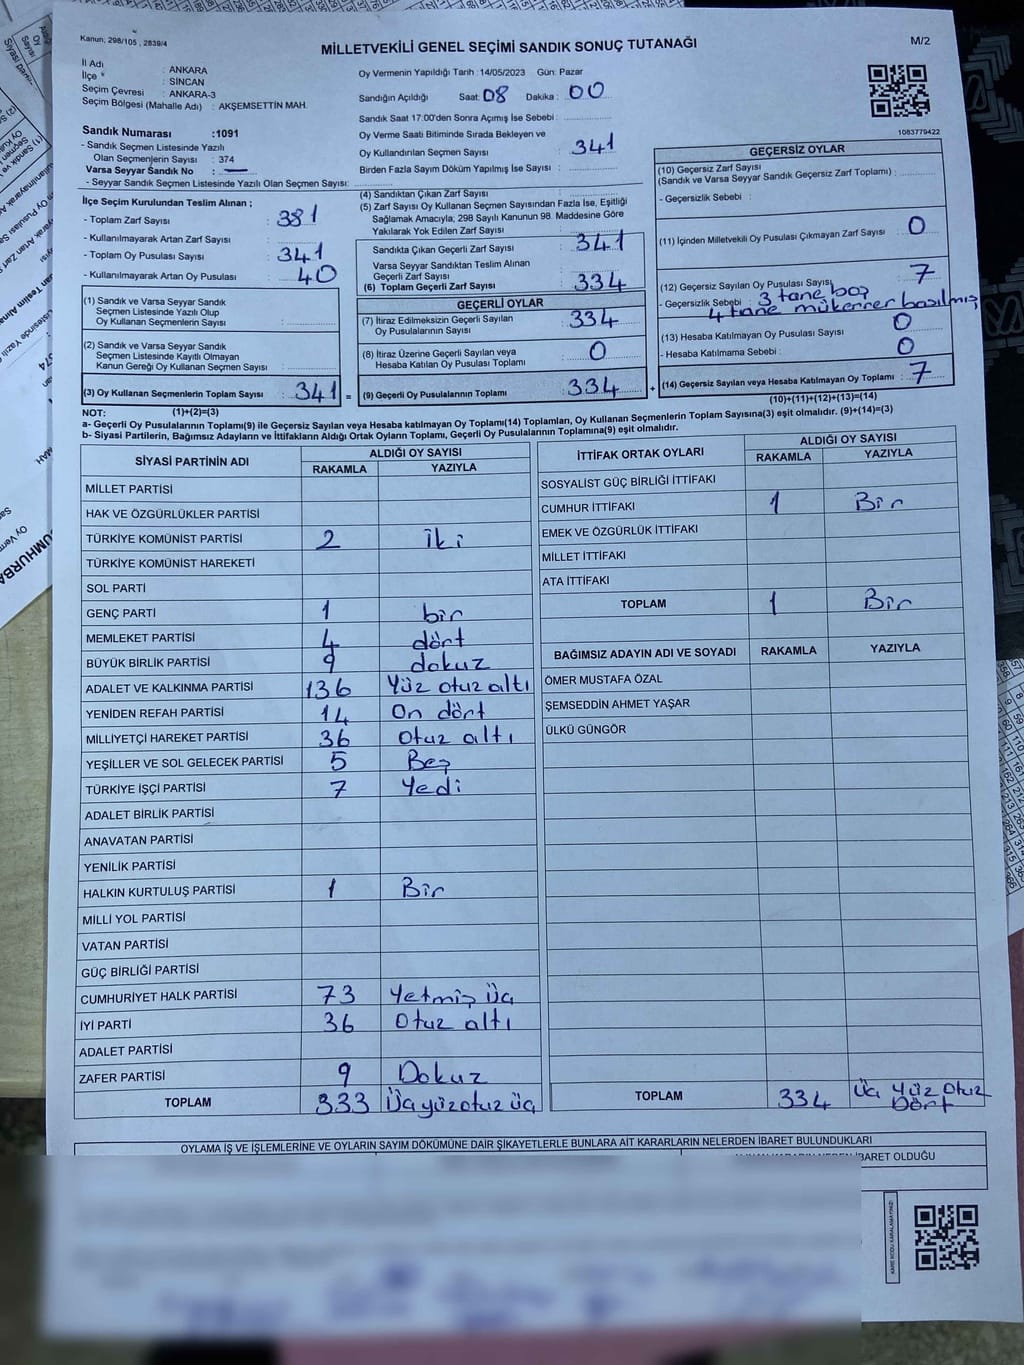 Kanun, 298/105 , 2839/4
MİLLETVEKİLİ GENEL SEÇİMİ SANDIK SONUÇ TUTANAĞI
M/2
İl Adı : ANKARA
İlçe : SİNCAN
Seçim Çevresi : ANKARA-3
Seçim Bölgesi (Mahalle Adı) : AKŞEMSETTİN MAH.
Oy Vermenin Yapıldığı Tarih : 14/05/2023 Gün: Pazar
Sandığın Açıldığı Saat: 08 Dakika : 00
Sandık Saat 17:00'den Sonra Açımış İse Sebebi :
Sandık Numarası :1091
- Sandık Seçmen Listesinde Yazılı
Olan Seçmenlerin Sayısı : 374
Varsa Seyyar Sandık No : —
- Seyyar Sandık Seçmen Listesinde Yazılı Olan Seçmen Sayısı:
Oy Verme Saati Bitiminde Sırada Bekleyen ve
Oy Kullandırılan Seçmen Sayısı : 341
Birden Fazla Sayım Döküm Yapılmış İse Sayısı :
1083779422
İlçe Seçim Kurulundan Teslim Alınan ;
- Toplam Zarf Sayısı : 381
- Kullanılmayarak Artan Zarf Sayısı :
- Toplam Oy Pusulası Sayısı : 341
- Kullanılmayarak Artan Oy Pusulası : 40
(1) Sandık ve Varsa Seyyar Sandık
Seçmen Listesinde Yazılı Olup
Oy Kullanan Seçmenlerin Sayısı :
(2) Sandık ve Varsa Seyyar Sandık
Seçmen Listesinde Kayıtlı Olmayan
Kanun Gereği Oy Kullanan Seçmen Sayısı :
(3) Oy Kullanan Seçmenlerin Toplam Sayısı : 341 =
(1)+(2)=(3)
(4) Sandıktan Çıkan Zarf Sayısı :
(5) Zarf Sayısı Oy Kullanan Seçmen Sayısından Fazla İse, Eşitliği
Sağlamak Amacıyla; 298 Sayılı Kanunun 98. Maddesine Göre
Yakılarak Yok Edilen Zarf Sayısı :
Sandıkta Çıkan Geçerli Zarf Sayısı : 341
Varsa Seyyar Sandıktan Teslim Alınan
Geçerli Zarf Sayısı
(6) Toplam Geçerli Zarf Sayısı : 334
GEÇERLİ OYLAR
(7) İtiraz Edilmeksizin Geçerli Sayılan
Oy Pusulalarının Sayısı : 334
(8) İtiraz Üzerine Geçerli Sayılan veya
Hesaba Katılan Oy Pusulası Toplamı : 0
(9) Geçerli Oy Pusulalarının Toplamı : 334 +
GEÇERSİZ OYLAR
(10) Geçersiz Zarf Sayısı
(Sandık ve Varsa Seyyar Sandık Geçersiz Zarf Toplamı) :
- Geçersizlik Sebebi :
(11) İçinden Milletvekili Oy Pusulası Çıkmayan Zarf Sayısı : 0
(12) Geçersiz Sayılan Oy Pusulası Sayısı : 7
- Geçersizlik Sebebi : 3 tane boş
4 tane mükerrer basılmış
(13) Hesaba Katılmayan Oy Pusulası Sayısı : 0
- Hesaba Katılmama Sebebi : 0
(14) Geçersiz Sayılan veya Hesaba Katılmayan Oy Toplamı : 7
(10)+(11)+(12)+(13)=(14)
NOT:
a- Geçerli Oy Pusulaları Toplamı(9) ile Geçersiz Sayılan veya Hesaba katılmayan Oy Toplamı(14) Toplamları, Oy Kullanan Seçmenlerin Toplam Sayısına(3) eşit olmalıdır. (9)+(14)=(3)
b- Siyasi Partilerin, Bağımsız Adayların ve İttifakların Aldığı Ortak Oyların Toplamı, Geçerli Oy Pusulalarının Toplamına(9) eşit olmalıdır.
SİYASİ PARTİNİN ADI ALDIĞI OY SAYISI
RAKAMLA YAZIYLA
MİLLET PARTİSİ
HAK VE ÖZGÜRLÜKLER PARTİSİ
TÜRKİYE KOMÜNİST PARTİSİ 2 iki
TÜRKİYE KOMÜNİST HAREKETİ
SOL PARTİ
GENÇ PARTİ 1 bir
MEMLEKET PARTİSİ 4 dört
BÜYÜK BİRLİK PARTİSİ 9 dokuz
ADALET VE KALKINMA PARTİSİ 136 Yüz otuz altı
YENİDEN REFAH PARTİSİ 14 On dört
MİLLİYETÇİ HAREKET PARTİSİ 36 Otuz altı
YEŞİLLER VE SOL GELECEK PARTİSİ 5 Beş
TÜRKİYE İŞÇİ PARTİSİ 7 Yedi
ADALET BİRLİK PARTİSİ
ANAVATAN PARTİSİ
YENİLİK PARTİSİ
HALKIN KURTULUŞ PARTİSİ 1 Bir
MİLLİ YOL PARTİSİ
VATAN PARTİSİ
GÜÇ BİRLİĞİ PARTİSİ
CUMHURİYET HALK PARTİSİ 73 Yetmiş üç
İYİ PARTİ 36 Otuz altı
ADALET PARTİSİ
ZAFER PARTİSİ 9 Dokuz
TOPLAM 333 Üç yüz otuz üç
İTTİFAK ORTAK OYLARI ALDIĞI OY SAYISI
RAKAMLA YAZIYLA
SOSYALİST GÜÇ BİRLİĞİ İTTİFAKI
CUMHUR İTTİFAKI 1 Bir
EMEK VE ÖZGÜRLÜK İTTİFAKI
MİLLET İTTİFAKI
ATA İTTİFAKI
TOPLAM 1 Bir
BAĞIMSIZ ADAYIN ADI VE SOYADI RAKAMLA YAZIYLA
ÖMER MUSTAFA ÖZAL
ŞEMSEDDİN AHMET YAŞAR
ÜLKÜ GÜNGÖR
TOPLAM 334 Üç Yüz Otuz
Dört
OYLAMA İŞ VE İŞLEMLERİNE VE OYLARIN SAYIM DÖKÜMÜNE DAİR ŞİKAYETLERLE BUNLARA AİT KARARLARIN NELERDEN İBARET BULUNDUKLARI
İBARET OLDUĞU
KARE KODU KARALAMAYINIZ!